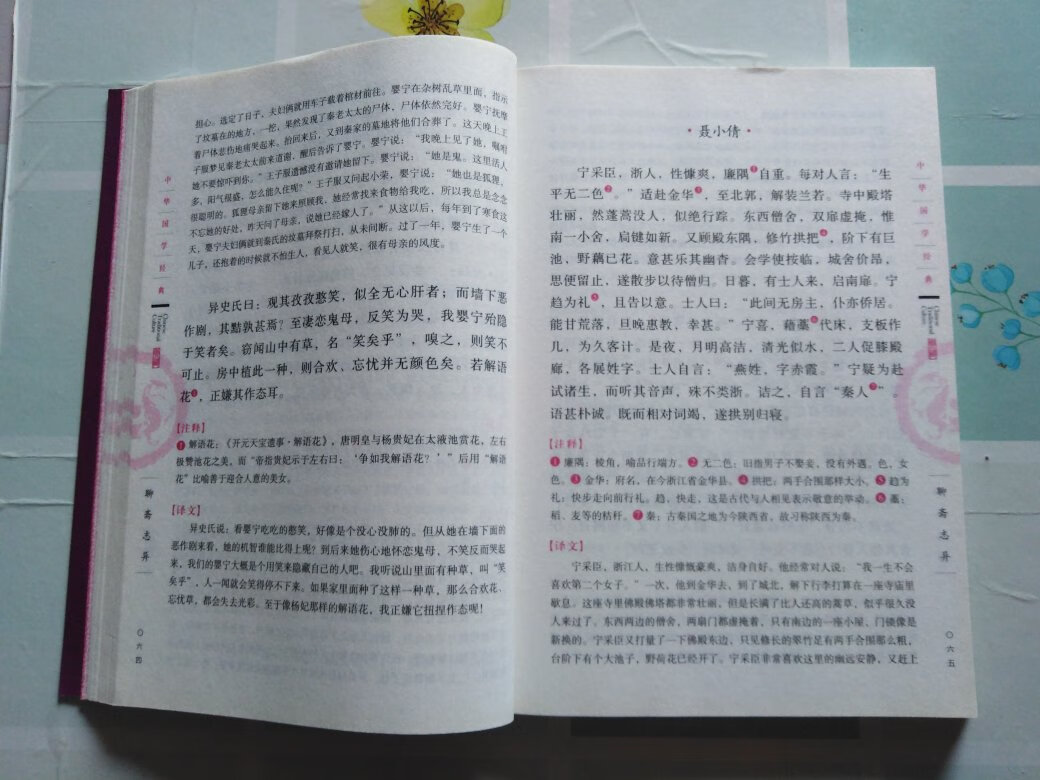 担心。选定了日子，夫妇俩就用车子载着棺材前往。婴宁在杂树乱草里面，指示
了坟墓在的地方，一挖，果然发现了秦老太太的尸体，尸体依然完好。婴宁抚摩
着尸体悲伤地痛哭起来。抬回来后，又到秦家的墓地将他们合葬了。这天晚上王
子服梦见秦老太太前来道谢，醒后告诉了婴宁。婴宁说：“我晚上见了她，嘱咐
她不要惊吓到你。”王子服遗憾没有邀请她留下。婴宁说：“她是鬼。这里活人
多，阳气很盛，怎么能久住呢？”王子服又问起小荣，婴宁说：“她也是狐狸，
很聪明的。狐狸母亲留下她来照顾我，她经常找来食物给我吃，所以我总是念念
不忘她的好处，昨天问了母亲，说她已经嫁人了。”从这以后，每年到了寒食这
天，婴宁夫妇俩就到秦氏的坟墓拜祭打扫，从未间断。过了一年，婴宁生了一个
儿子，还抱着的时候就不怕生人，看见人就笑，很有母亲的风度。
异史氏曰：观其孜孜憨笑，似全无心肝者；而墙下恶
作剧，其黠孰甚焉？至凄恋鬼母，反笑为哭，我婴宁殆隐
于笑者矣。窃闻山中有草，名“笑矣乎”，嗅之，则笑不
可止。房中植此一种，则合欢、忘忧并无颜色矣。若解语
花❶，正嫌其作态耳。
【注释】
❶ 解语花：《开元天宝遗事·解语花》，唐明皇与杨贵妃在太液池赏花，左右
极赞池花之美，而“帝指贵妃示于左右曰：‘争如我解语花？’”后用“解语
花”比喻善于迎合人意的美女。
【译文】
异史氏说：看婴宁吃吃的憨笑，好像是个没心没肺的。但从她在墙下面的
恶作剧来看，她的机智谁能比得上呢？到后来她伤心地怀恋鬼母，不笑反而哭起
来，我们的婴宁大概是个用笑来隐藏自己的人吧。我听说山里面有种草，叫“笑
矣乎”，人一闻就会笑得停不下来。如果家里面种了这样一种草，那么合欢花、
忘忧草，都会失去光彩。至于像杨妃那样的解语花，我正嫌它扭捏作态呢！
中华国学经典
Chinese
Traditional
Culture
聊斋志异
〇六四
·聂小倩·
宁采臣，浙人，性慷爽，廉隅❶自重。每对人言：“生
平无二色❷。”适赴金华❸，至北郭，解装兰若。寺中殿塔
壮丽，然蓬蒿没人，似绝行踪。东西僧舍，双扉虚掩，惟
南一小舍，扃键如新。又顾殿东隅，修竹拱把❹，阶下有巨
池，野藕已花。意甚乐其幽杳。会学使按临，城舍价昂，
思便留止，遂散步以待僧归。日暮，有士人来，启南扉。宁
趋为礼❺，且告以意。士人曰：“此间无房主，仆亦侨居。
能甘荒落，旦晚惠教，幸甚。”宁喜，藉藁❻代床，支板作
几，为久客计。是夜，月明高洁，清光似水，二人促膝殿
廊，各展姓字。士人自言：“燕姓，字赤霞。”宁疑为赴
试诸生，而听其音声，殊不类浙。诘之，自言“秦人❼”。
语甚朴诚。既而相对词竭，遂拱别归寝。
【注释】
❶ 廉隅：棱角，喻品行端方。❷ 无二色：旧指男子不娶妾，没有外遇。色，女
色。❸ 金华：府名，在今浙江省金华县。❹ 拱把：两手合围那样大小。❺ 趋为
礼：快步走向前行礼。趋，快走，这是古代与人相见表示敬意的举动。❻ 藁：
稻、麦等的秸秆。❼ 秦：古秦国之地为今陕西省，故习称陕西为秦。
【译文】
宁采臣，浙江人，生性慷慨豪爽，洁身自好。他经常对人说：“我一生不会
喜欢第二个女子。”一次，他到金华去，到了城北，解下行李打算在一座寺庙里
歇息。这座寺里佛殿佛塔都非常壮丽，但是长满了比人还高的蒿草，似乎很久没
人来过了。东西两边的僧舍，两扇门都虚掩着，只有南边的一座小屋，门锁像是
新换的。宁采臣又打量了一下佛殿东边，只见修长的翠竹足有两手合围那么粗，
台阶下有个大池子，野荷花已经开了。宁采臣非常喜欢这里的幽远安静，又赶上
中华国学经典
Chinese
Traditional
Culture
聊斋志异
〇六五